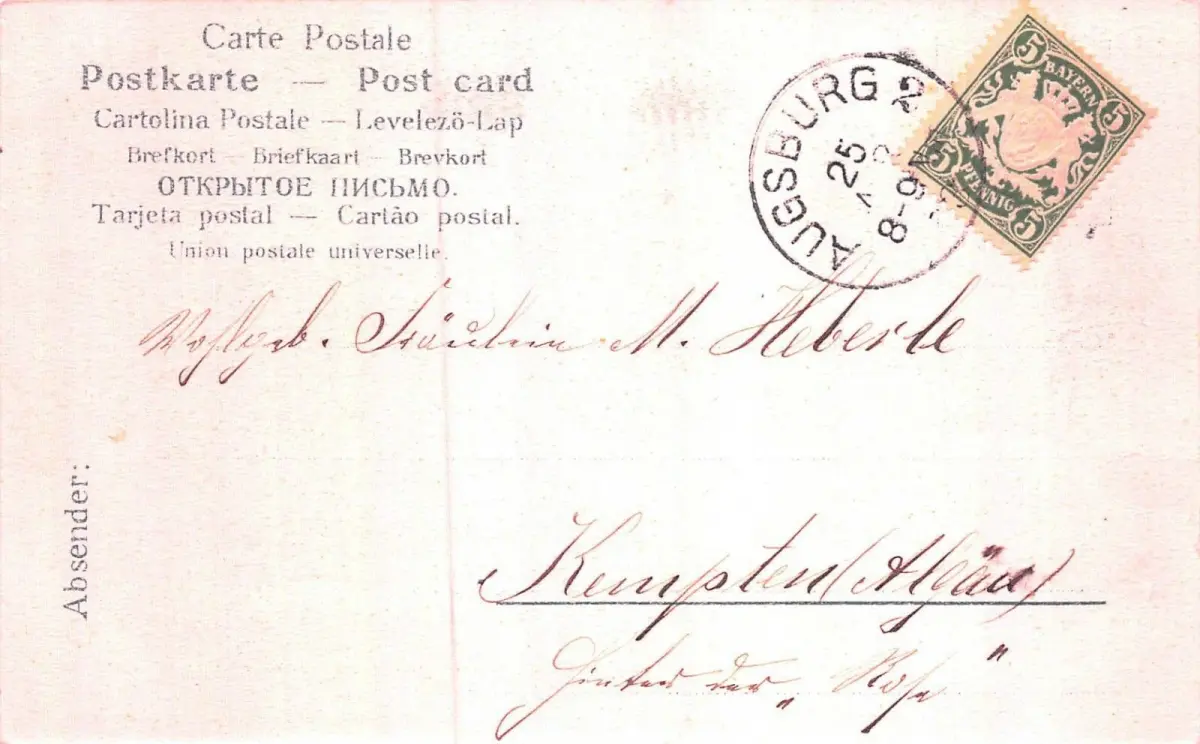 Carte Postale
Postkarte — Post card
Cartolina Postale — Levelező-Lap
Brefkort — Briefkaart — Brevkort
ОТКРЫТОЕ ПИСЬМО.
Tarjeta postal — Cartão postal.
Union postale universelle.
AUGSBURG 2
25
8-9
5 BAYERN 5
5 PFENNIG 5
Wohlgeb. Fräulein M. Heberle
Absender:
Kempten (Algäu)
Hinter der „Rose"